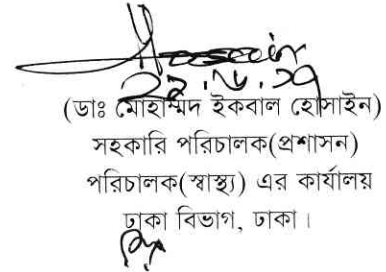 (ডাঃ মোহাম্মদ ইকবাল হোসাইন)
সহকারি পরিচালক(প্রশাসন)
পরিচালক(স্বাস্থ্য) এর কার্যালয়
ঢাকা বিভাগ, ঢাকা।